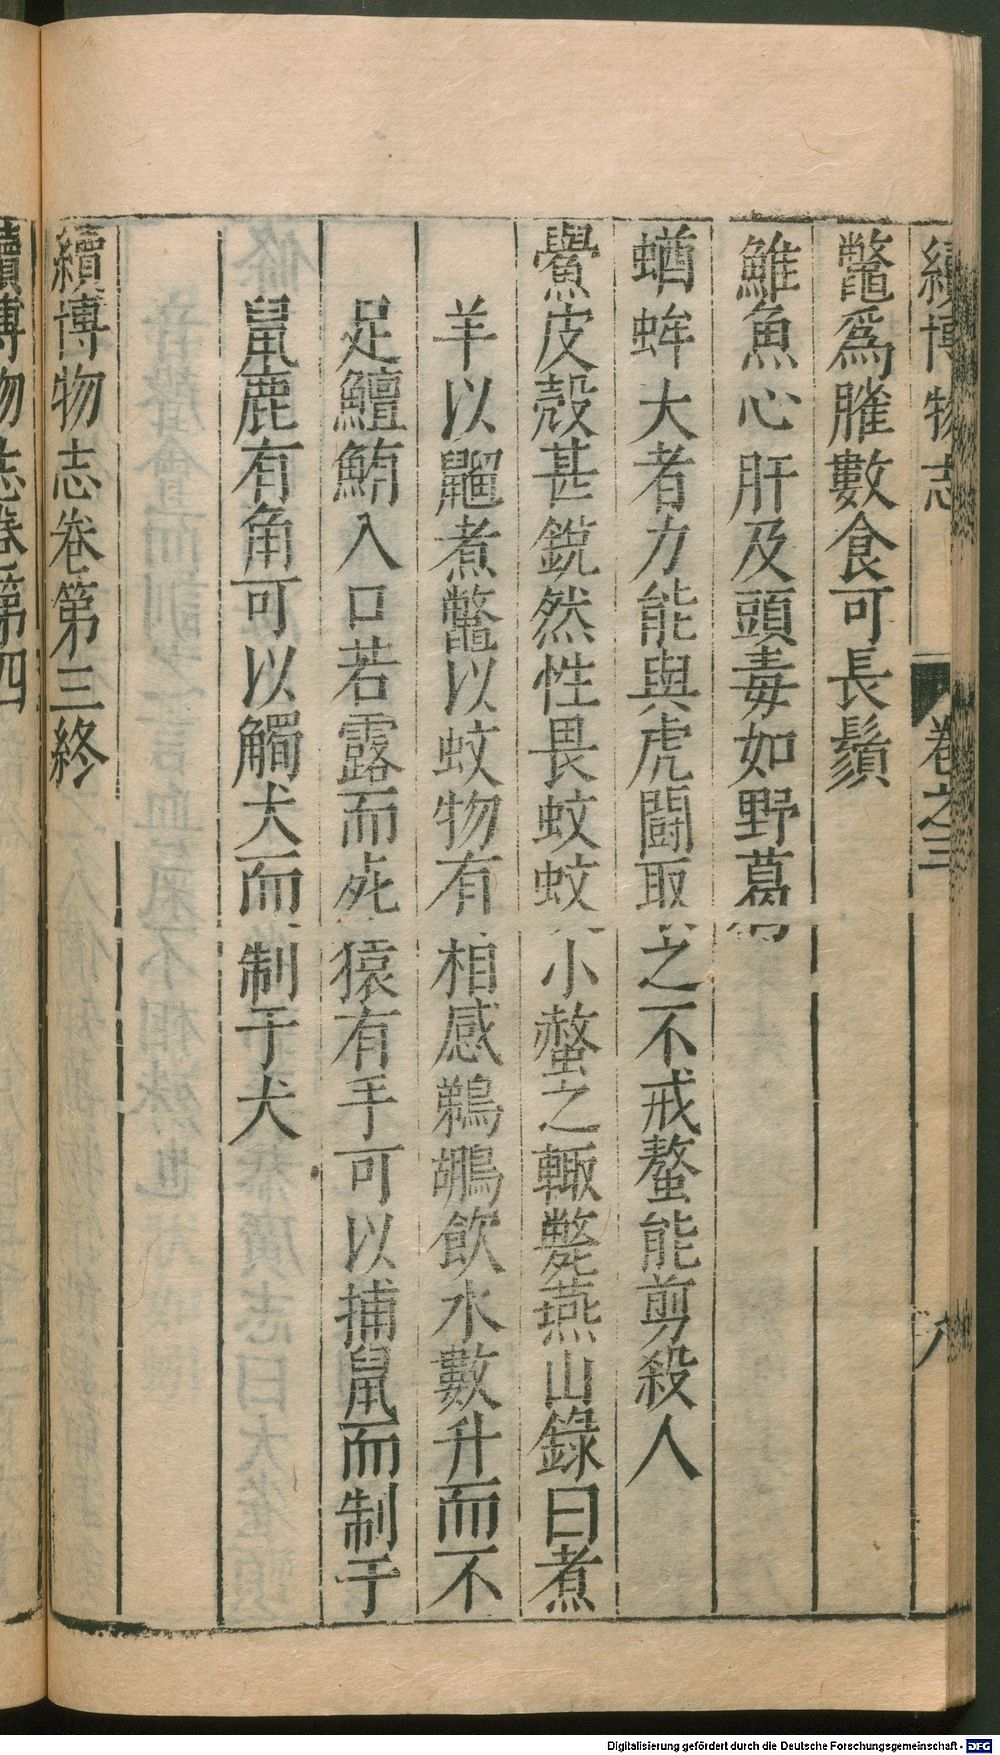 續博物志 卷之三 八
鼈爲臛數食可長鬚
鯸魚心肝及頭毒如野葛
蝤蛑大者力能與虎鬪取之不戒螯能剪殺人
鱟皮殼甚銳然性畏蚊蚊小螫之輙斃燕山錄曰煮
羊以䶉煮鼈以蚊物有相感鵜鶘飲水數升而不
足鱣鮪入口若露而死猿有手可以捕鼠而制于
鼠鹿有角可以觸犬而制于犬
續博物志卷第三終
續博物志卷第四
Digitalisierung gefördert durch die Deutsche Forschungsgemeinschaft - DFG